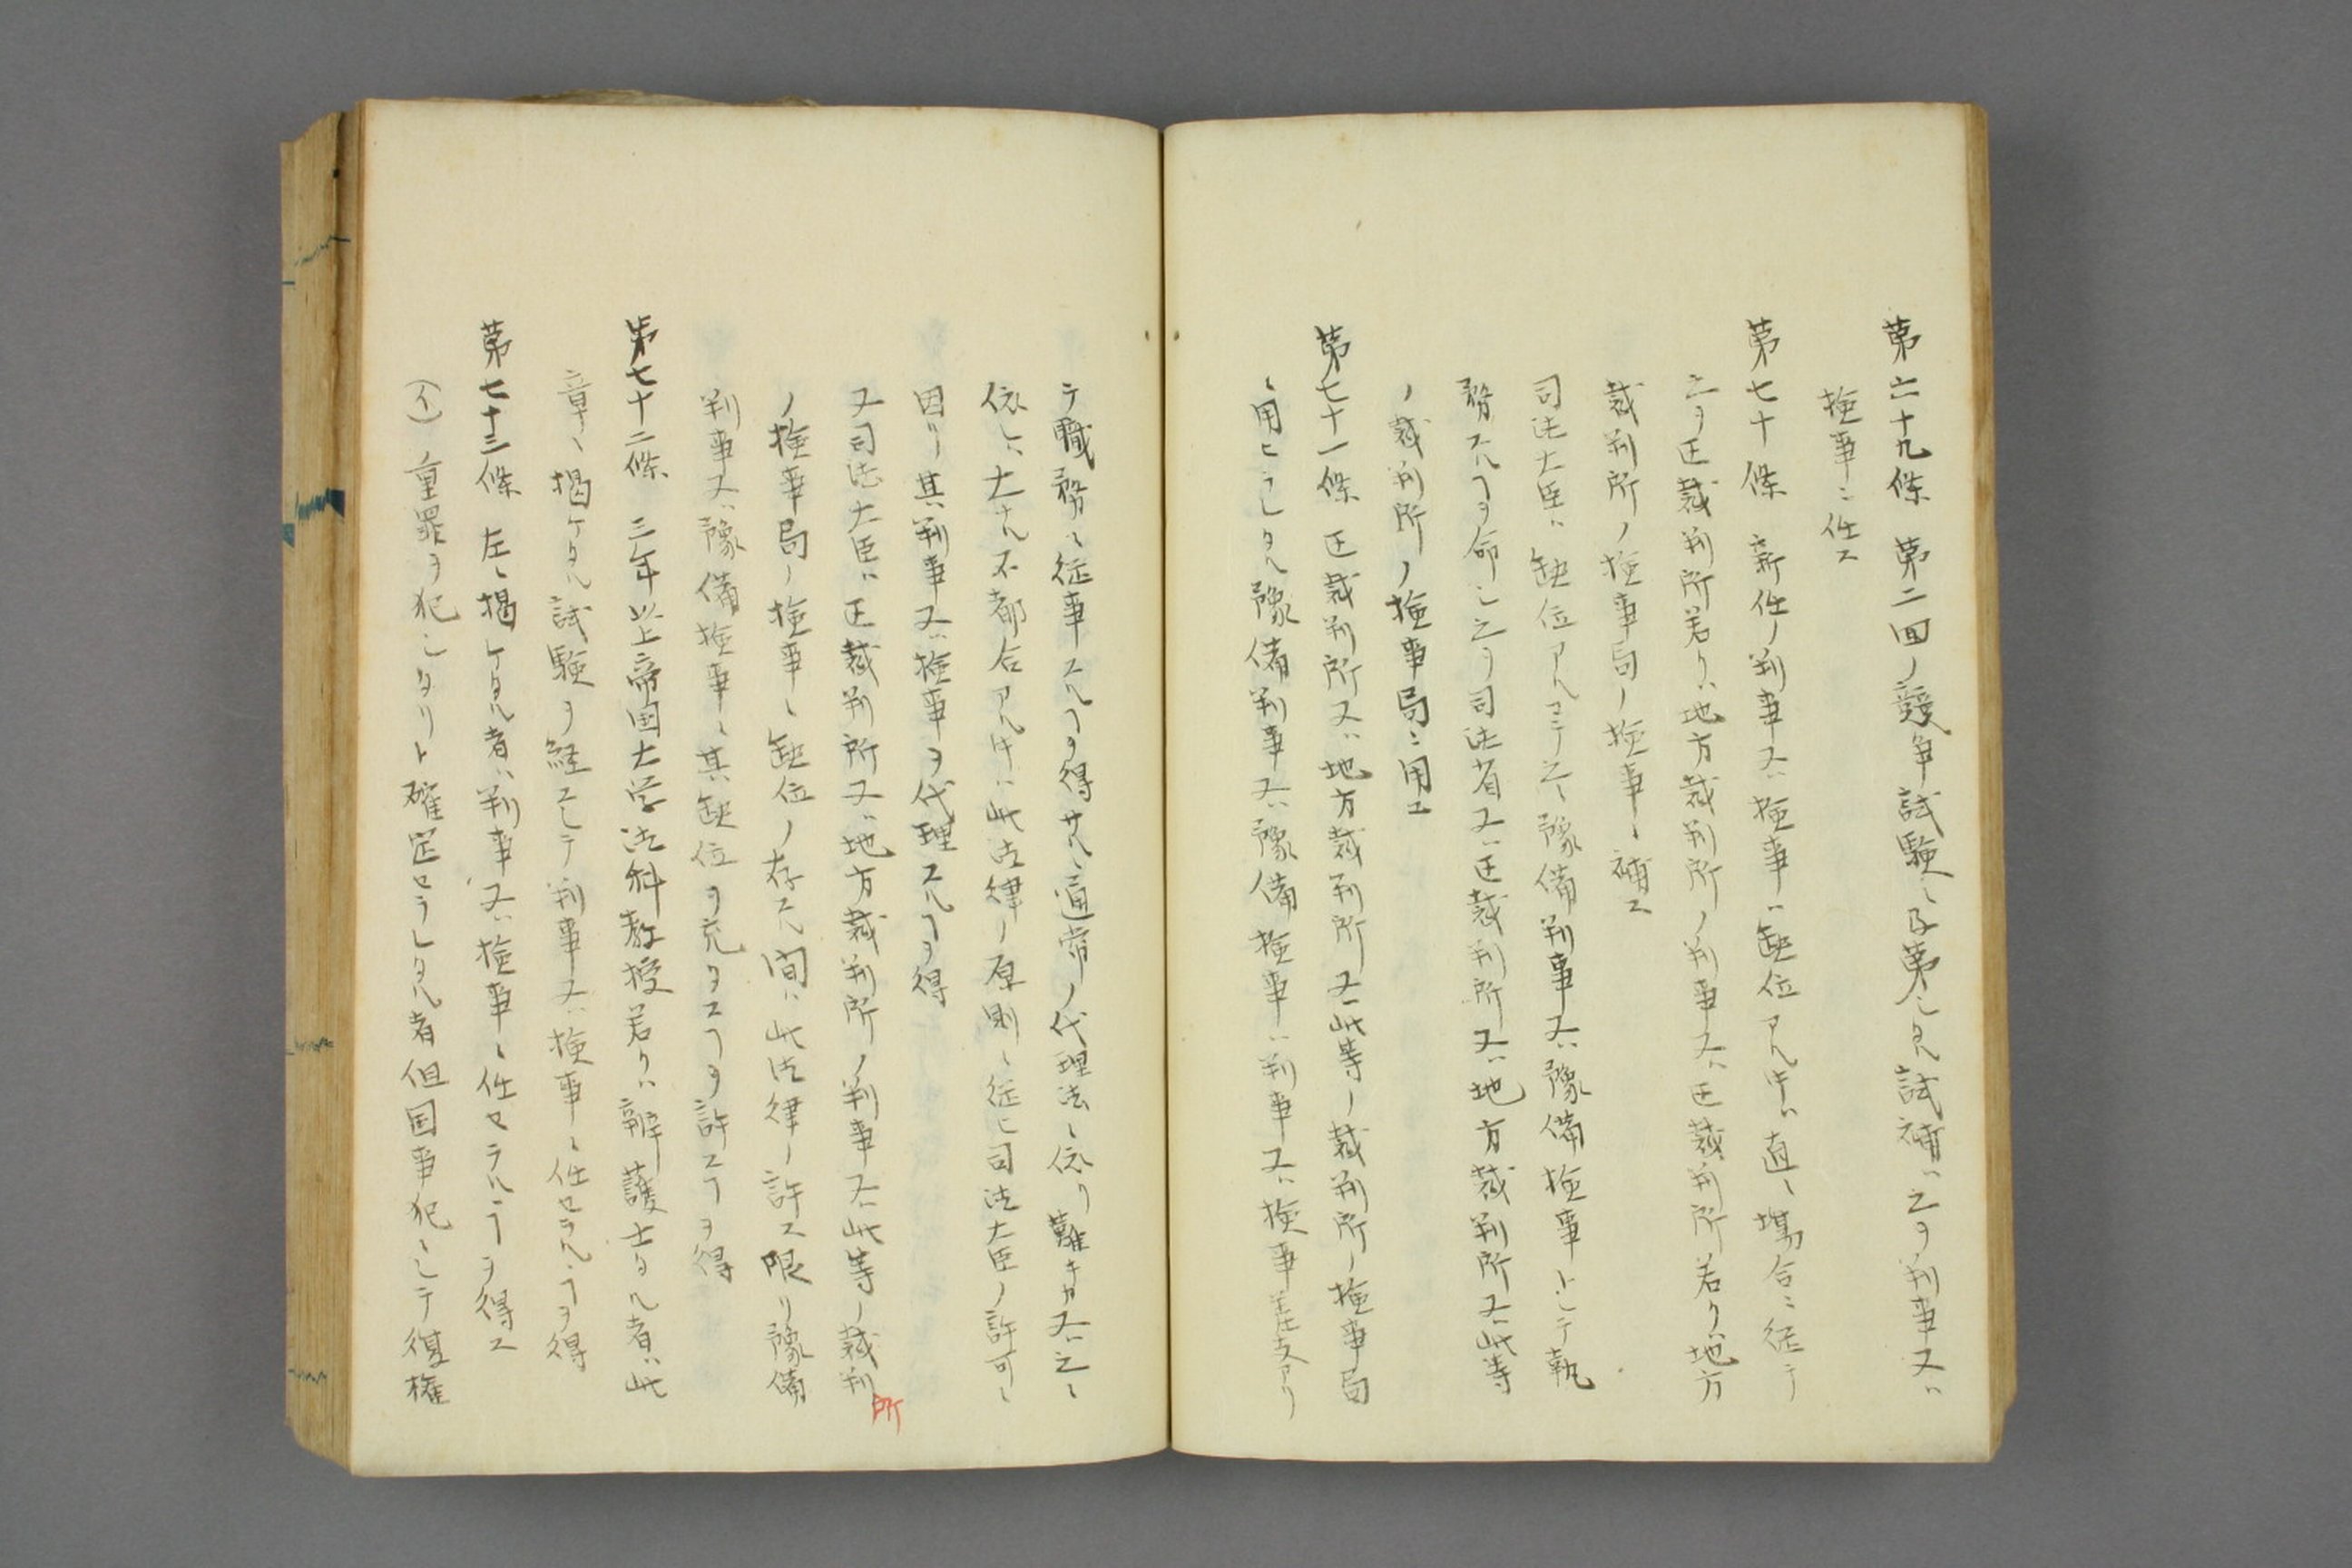 第六十九條 第二回ノ競争試験ニ及第シタル試補ハ之ヲ判事又ハ
檢事ニ任ス
第七十條 新任ノ判事又ハ檢事ハ缺位アルキハ直ニ塲合ニ從テ
之ヲ区裁判所若クハ地方裁判所ノ判事又ハ区裁判所若クハ地方
裁判所ノ檢事局ノ檢事ニ補ス
司法大臣ハ缺位アルマテ之ニ豫備判事又ハ豫備檢事トシテ執
務スルヿヲ命シ之ヲ司法省又ハ区裁判所又ハ地方裁判所又ハ此等
ノ裁判所ノ檢事局ニ用ユ
第七十一條 区裁判所又ハ地方裁判所又ハ此等ノ裁判所ノ檢事局
ニ用ヒラレタル豫備判事又ハ豫備檢事ハ判事又ハ檢事差支アリ
テ職務ニ從事スルヿヲ得サルニ通常ノ代理法ニ依リ難キカ又ハ之ニ
依レハ大ナル不都合アルキハ此法律ノ原則ニ從ヒ司法大臣ノ許可ニ
因リ其判事又ハ檢事ヲ代理スルヿヲ得
又司法大臣ハ区裁判所又ハ地方裁判所ノ判事又ハ此等ノ裁判所
ノ檢事局ノ檢事ニ缺位ノ存スル間ハ此法律ノ許ス限リ豫備
判事又ハ豫備檢事ニ其缺位ヲ充タスヿヲ許スヿヲ得
第七十二條 三年以上帝国大学法科教授若クハ辯護士タル者ハ此
章ニ掲ケタル試験ヲ経スシテ判事又ハ檢事ニ任セラルヽヿヲ得
第七十三條 左ニ掲ケタル者ハ判事又ハ檢事ニ任セラルヽヿヲ得ス
(イ) 重罪ヲ犯シタリト確定セラレタル者但国事犯ニシテ復権